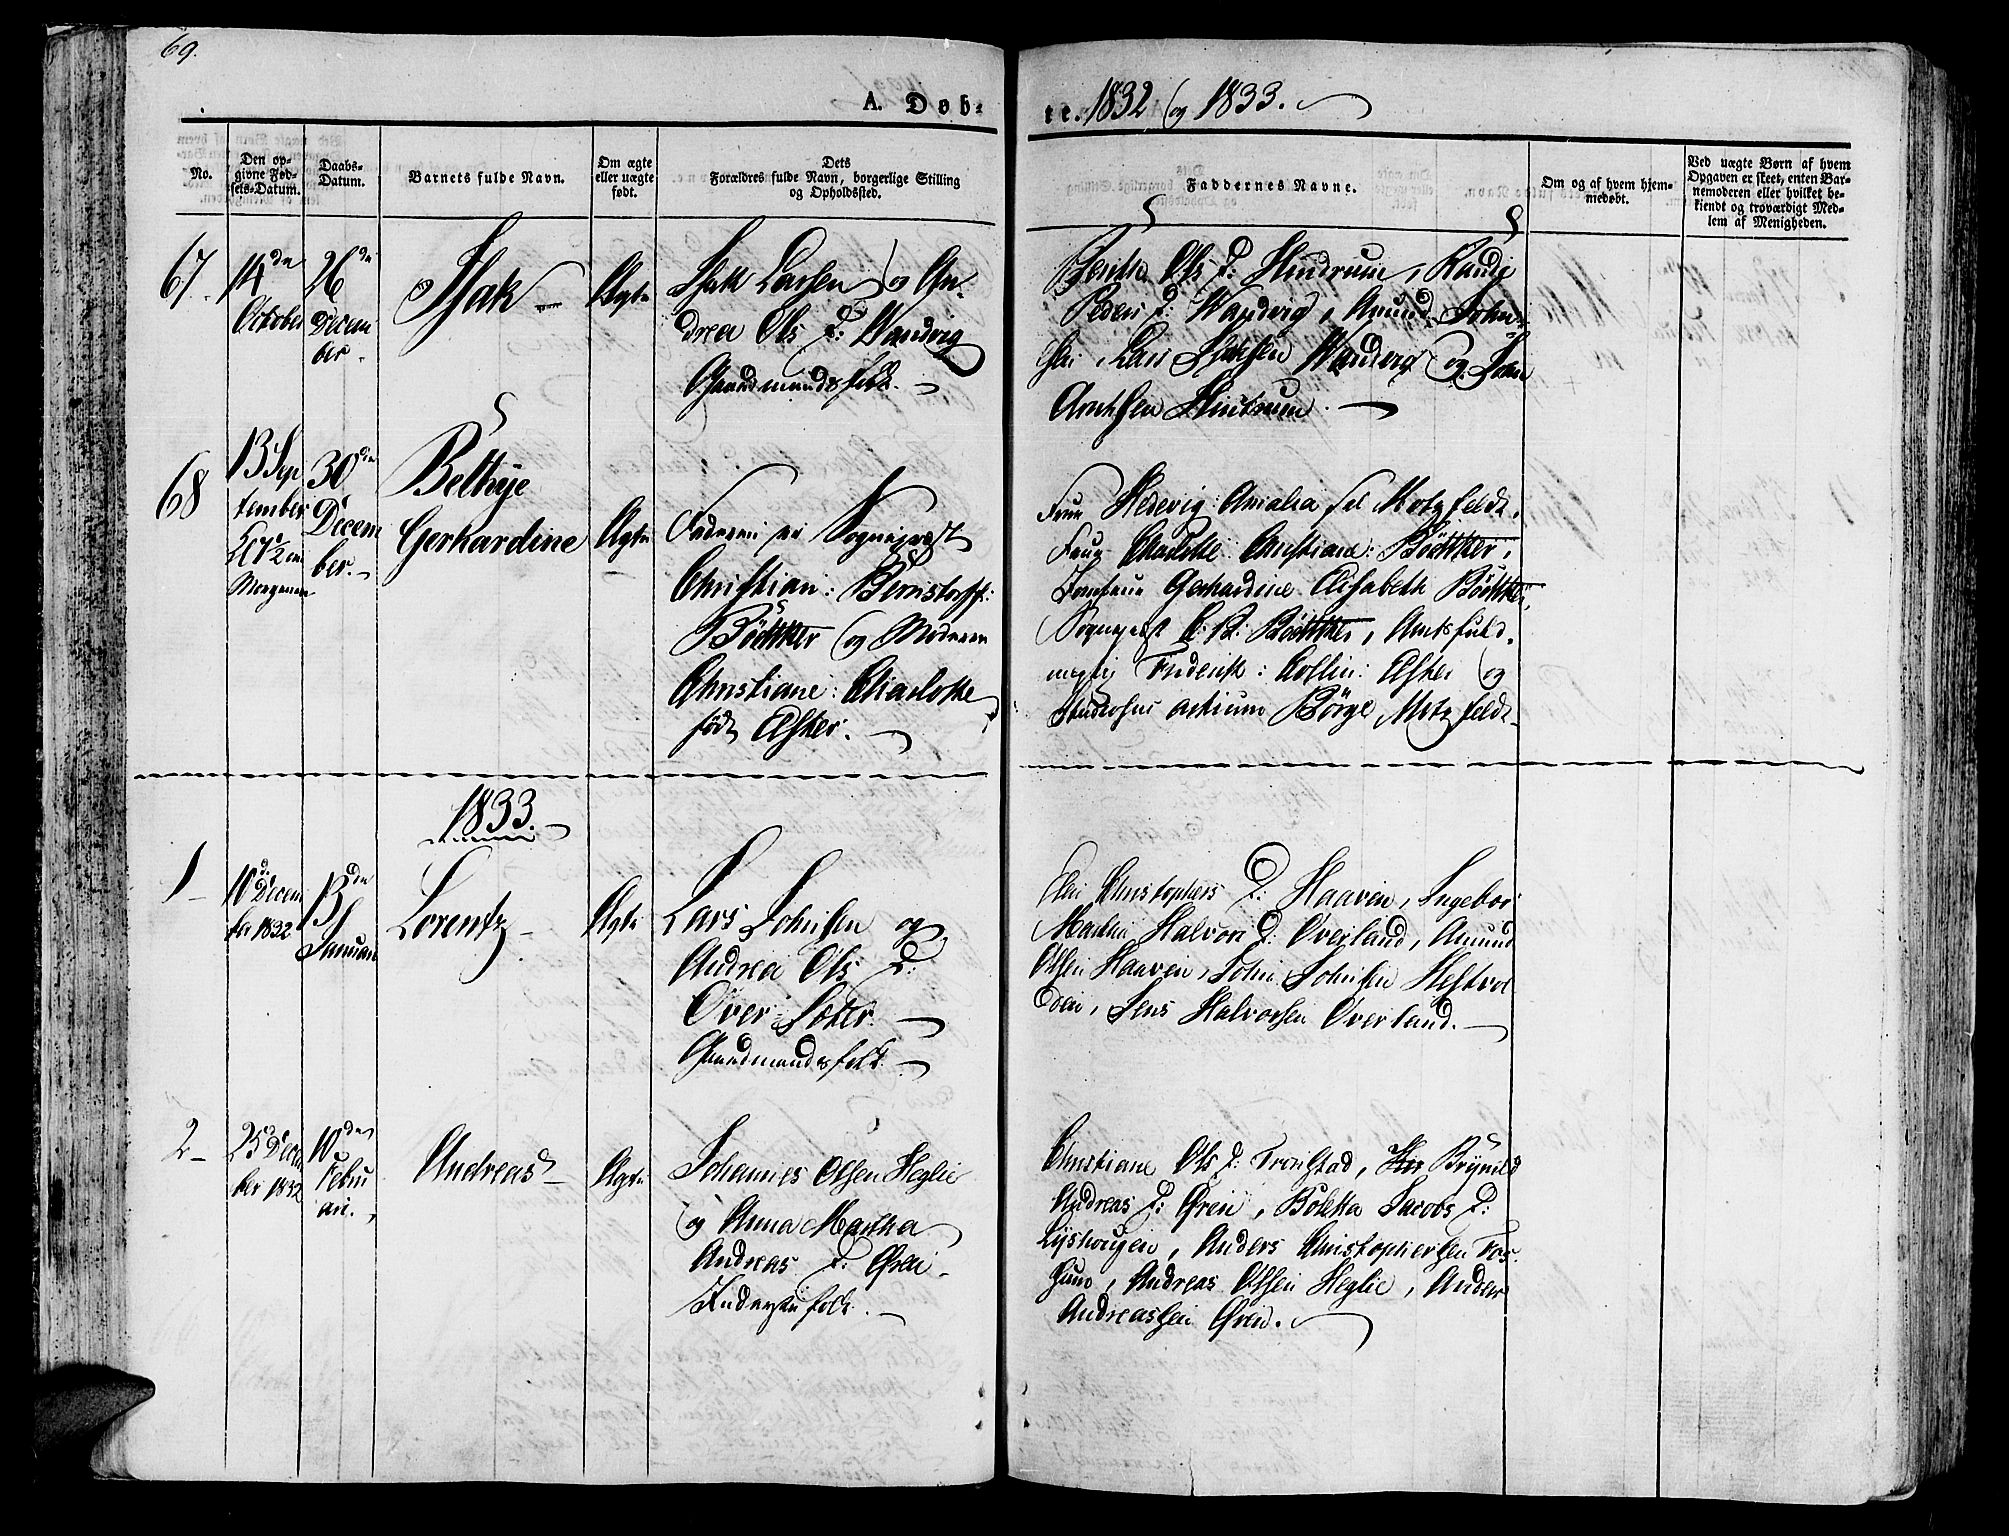 69.
A. Døb-
te. 1832 og 1833.
No.
Den op-
givne Fød-
sels-Datum.
Daabs-
Datum.
Barnets fulde Navn.
Om ægte
eller uægte
født.
Dets
Forældres fulde Navn, borgerlige Stilling
og Opholdssted.
Faddernes Navne.
Om og af hvem hjem-
medøbt.
Ved uægte Børn af hvem
Opgaven er skeet, enten Bar-
nemoderen eller hvilket be-
kiendt og troværdigt Med-
lem af Menigheden.
67.
14de
October
26de
Decem
ber.
Isak
Ægte
Isak Larsen og An-
drea Ols D: Wandvig
Gaardmandsfolk.
Berith Ols D: Hindrum, Randi
Peders D: Wandvig, Amund John-
sen, Lars Isaksen Wandvig og John
Arntsen Hindrum.
68
13 Sep
tember
Kl 7½ om
Morgenen
30de
Decem
ber.
Bethzye
Gerhardine
Ægte
Faderen er Sognepræst
Christian: Bernstorff:
Böttker og Moderen
Christiane: Charlotte
født Elster.
Frue Hedevig: Amalia sal Motzfeldt.
Frue Charlotte: Christiane: Böttker,
Jomfrue Gerhardine Elisabeth Böttker,
Sognepræst C: B: Böttker, Amtsfuld-
megtig Frederik: Collin: Elster og
Studiosus artium Börge Motzfeldt
1833.
1
10de Decem
ber 1832
13de
Januari
Lorentz
Ægte
Lars Johnsen og
Andrea Ols D:
Over-Sæter.
Gaardmandsfolk
Eli Christophers D: Haaven, Ingebor
Martin Halvors D: Overland, Amund
Olsen Haaven, John Johnsen Hestvol
den, Jens Halvorsen Overland.
2
25 Decem
ber 1832
10de
Febru
ari.
Andreas
Ægte
Johannes Olsen Heglie
og Anna Martha
Andreas D: Øren
Inderstfolk.
Christiane Ols D: Tronstad, Brynild
Andreas D: Øren, Boletta Jacobs D:
Lyshougen, Anders Christophersen For-
Andreas Olsen Heglie, Anders
Andreassen Øren.